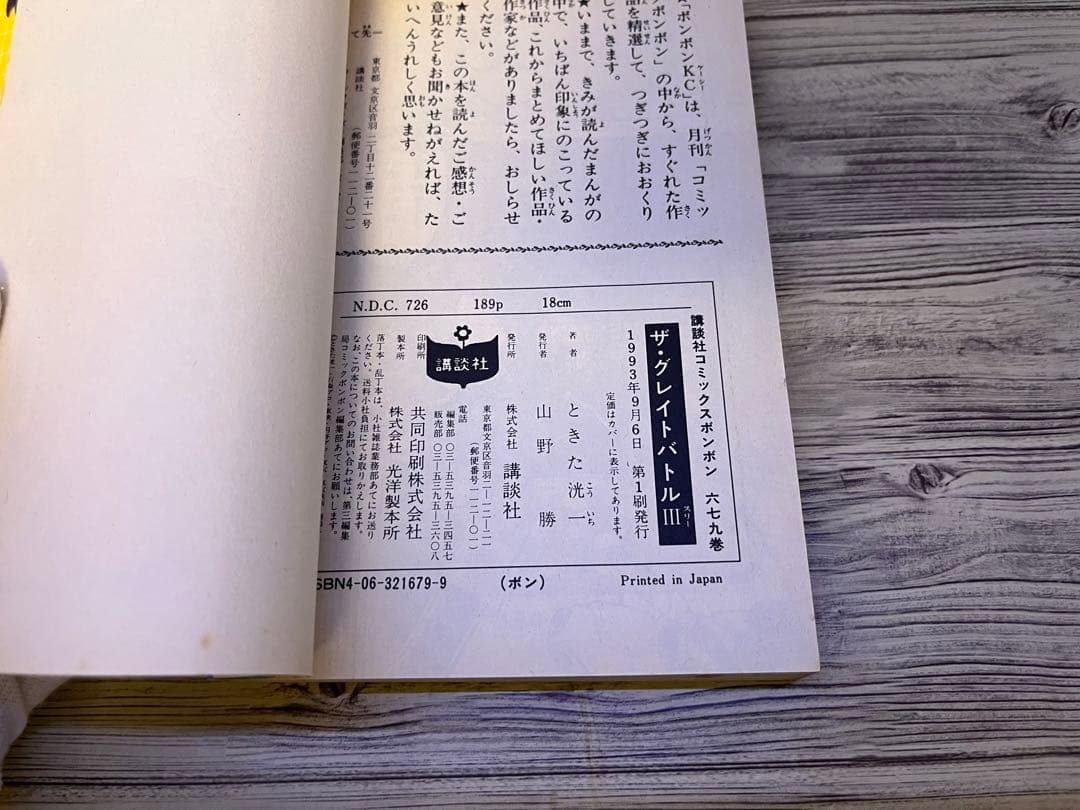 ★「ボンボンKC」は、月刊「コミッ
クボンボン」の中から、すぐれた作
品を精選して、つぎつぎにおおくり
していきます。
★いままで、きみが読んだまんがの
中で、いちばん印象にのこっている
作品、これからまとめてほしい作品・
作家などがありましたら、おしらせ
ください。
★また、この本を読んだご感想・ご
意見などもお聞かせねがえれば、た
いへんうれしく思います。
東京都文京区音羽二丁目十二番二十一号
講談社 (郵便番号一一二―〇一)
N.D.C. 726 189p 18cm
講談社コミックスボンボン 六七九巻
ザ・グレイトバトルIII
スリー
1993年9月6日 第1刷発行
定価はカバーに表示してあります。
著者 ときた洸一
こういち
発行者 山野勝
発行所 株式会社 講談社
東京都文京区音羽二―一二―二一
(郵便番号一一二―〇一)
電話 編集部 〇三―五三九五―三四五七
販売部 〇三―五三九五―三六〇八
講談社
印刷所 共同印刷株式会社
製本所 株式会社 光洋製本所
落丁本・乱丁本は、小社雑誌業務部あてにお送り
ください。送料小社負担にてお取りかえします。
なお、この本についてのお問い合わせは、第三編集
局コミックボンボン編集部あてにお願いします。
ISBN4-06-321679-9 (ボン) Printed in Japan